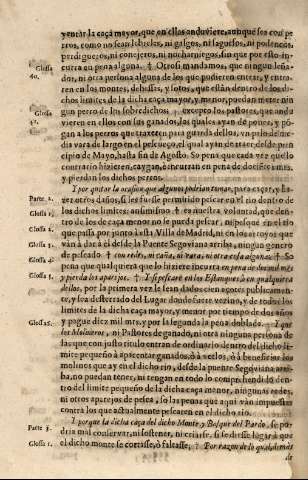 yentar la caça mayor, que en ellas onduviere, aunque sea con pe
rros, como no sean lebreles, ni galgos, ni sagueslos, ni podencos,
perdigueros, ni conejeros, ni nocharniegos, sin que por ello in-
Glossa curra en pena alguna. † Otrosi mandamos, que ningun lena-
40. dor, ni otra persona alguna de los que pudieren entrar, y entra-
ren en los montes, dehessas, y sotos, que estàn dentro de los di-
chos limites de la dicha caça mayor, y menor, puedan meter nin
Glossa gun perro de los sobredichos † excepto los pastores, que andu
vieren en ellos con sus ganados, los quales ayan de poner, y pó-
gan a los perros que traxeren para guarda dellos, un palo de me-
dia vara de largo en el pescueço, el qual ayan de traer, desde prin
cipio de Mayo, hasta fin de Agosto. So pena que cada vez que lo
contrario hizieren, caygan, è incurran en pena de docientos mrs.
y pierdan los dichos perros.
Por quitar la ocasion que algunos podrian tomar, para caçar, y ha-
Parte 2. zer otros daños, si les fuesse permitido pescar en el rio dentro de
Glossa 1. los dichos limites: assimismo, † es nuestra voluntad, que den-
Glossa 2. tro de los de caça menor no se pueda pescar, † ni pesque en el rio
que passa por junto a esta Villa de Madrid, ni en los arroyos que
Glossa 3. vàn à dar à èl desde la Puente Segoviana arriba, ningun genero
Glossa 4. de pescado † con redes, ni caña, ni vara, ni otra cosa alguna: † So
Glossa 5. pena que qualquiera que lo hiziere incurra en pena de dos mil mrs
y pierda los aparejos. † Y si pescare en los Estanques, ò en qualquiera
dellos, por la primera vez le sean dados cien açotes publicamen-
te, y sea desterrado del Lugar donde fuere vezino, y de todos los
limites de la dicha caça mayor, y menor por tiempo de dos años
y pague diez mil mrs. y por la segunda la pena doblada. † Y que
los Molineros, ni Pastores de ganado, ni otra ninguna persona de
las que con justo titulo entran de ordinario dentro del dicho li-
mite pequeño à apacentar ganados, ò à verlos, ò à beneficiar los
molinos que ay en el dicho rio, desde la puente Segoviana arri-
ba, no puedan tener, ni tengan en todo lo comprehendido den-
tro del limite pequeño de la dicha caça menor, ningunas redes,
ni otros aparejos de pesca, so las penas que aqui vàn impuestas
contra los que actualmente pescaren en el dicho rio.
Y porque la dicha caça del dicho Monte y Bosque del Pardo, se po
Parte 3. dria mal conservar, ni sostener, ni criarse, si se diesse lugar à que
Glossa 1. el dicho monte se cortasse, ò faltasse; † Por razon de lo qual, demàs
de